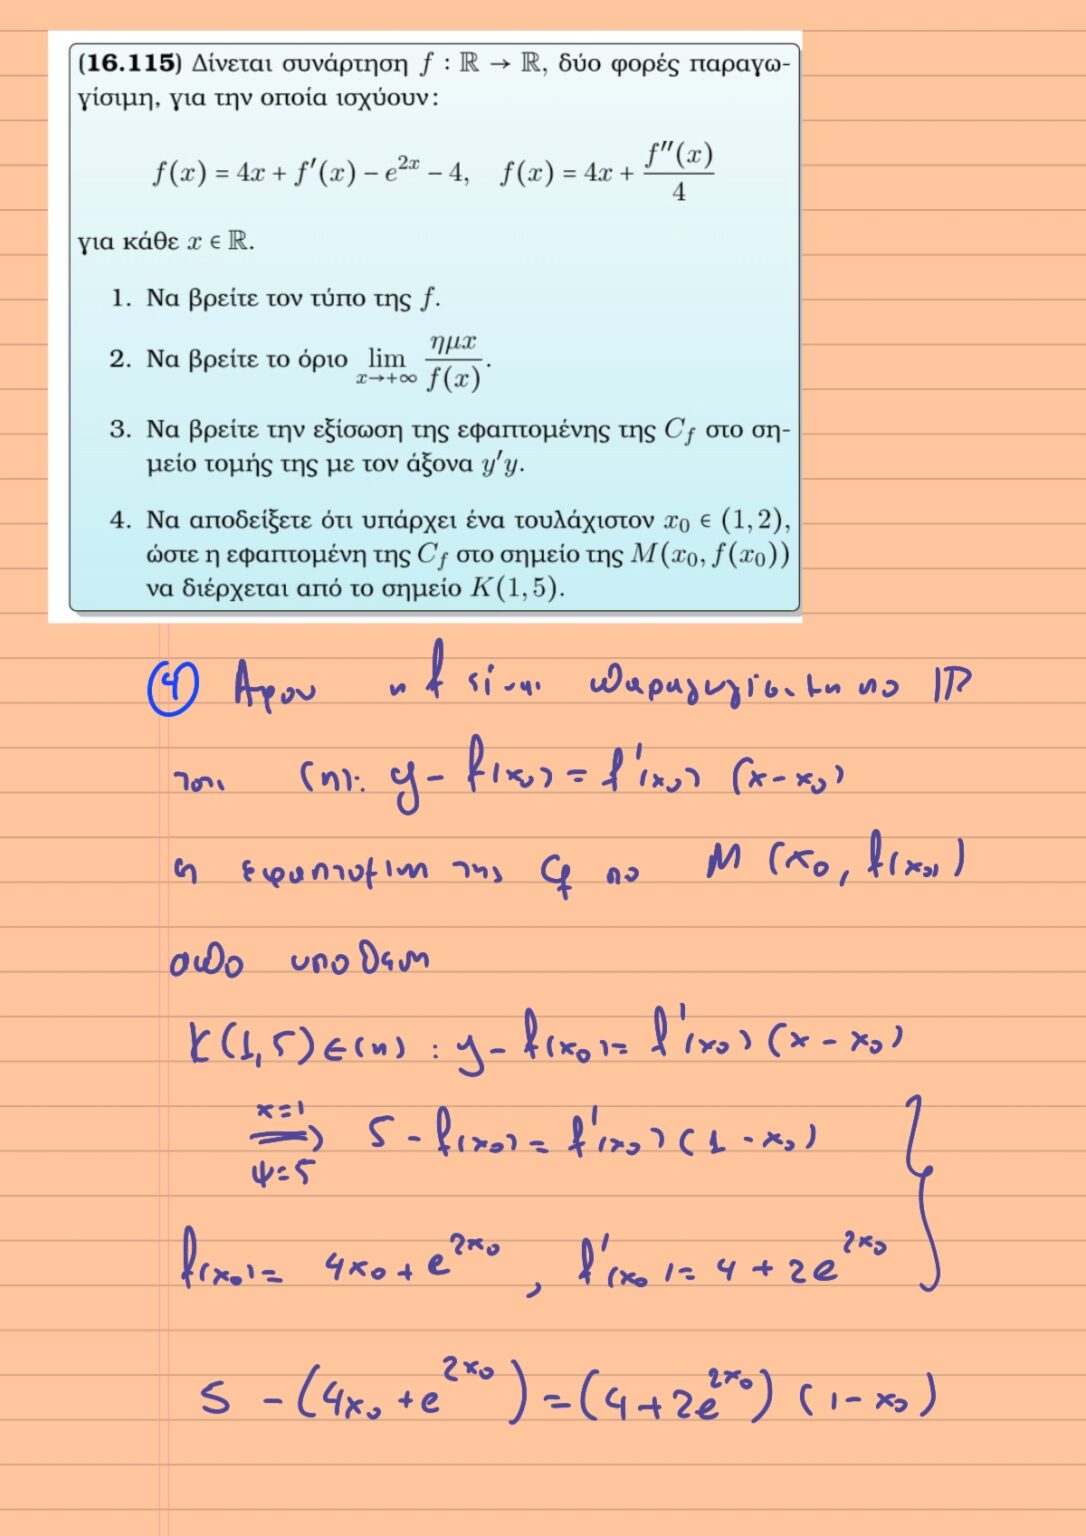 (16.115) Δίνεται συνάρτηση f : ℝ → ℝ, δύο φορές παραγω-
γίσιμη, για την οποία ισχύουν:
f(x) = 4x + f′(x) − e^{2x} − 4, f(x) = 4x + f″(x)/4
για κάθε x ∈ ℝ.
1. Να βρείτε τον τύπο της f.
2. Να βρείτε το όριο lim_{x→+∞} ημx/f(x).
3. Να βρείτε την εξίσωση της εφαπτομένης της C_f στο ση-
μείο τομής της με τον άξονα y′y.
4. Να αποδείξετε ότι υπάρχει ένα τουλάχιστον x₀ ∈ (1, 2),
ώστε η εφαπτομένη της C_f στο σημείο της M(x₀, f(x₀))
να διέρχεται από το σημείο K(1, 5).
④ Αφου η f είναι παραγωγίσιμη στο ℝ
τοτε (η): y − f(x₀) = f′(x₀) (x − x₀)
η εφαπτομένη της C_f στο M (x₀, f(x₀))
απο υποθεση
K(1,5) ∈ (η) : y − f(x₀) = f′(x₀) (x − x₀)
x=1 ⟹ ψ=5 5 − f(x₀) = f′(x₀) (1 − x₀)
f(x₀) = 4x₀ + e^{2x₀} , f′(x₀) = 4 + 2e^{2x₀}
5 − (4x₀ + e^{2x₀}) = (4 + 2e^{2x₀}) (1 − x₀)